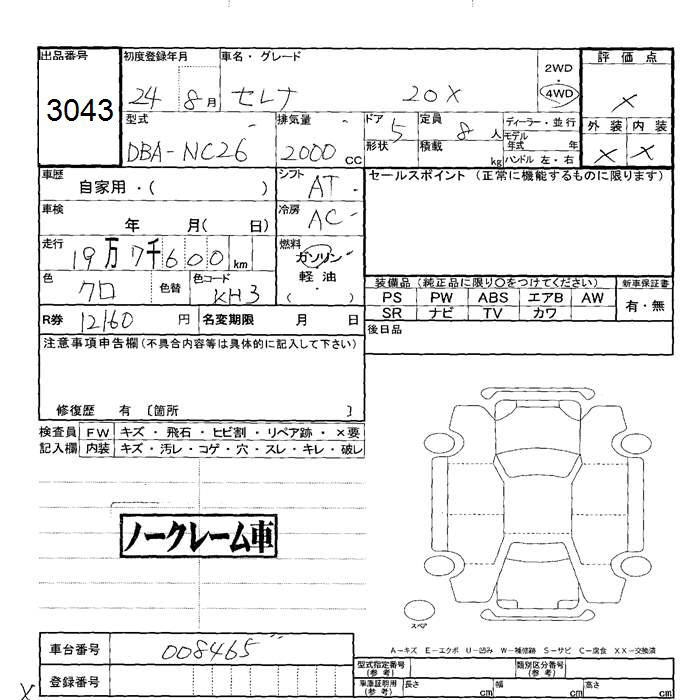 出品番号 初度登録年月 車名・グレード 2WD 評価点
3043 24 8月 セレナ 20X 4WD ×
型式 排気量 ドア 5 定員 8人 ディーラー・並行 外装 内装
DBA-NC26 2000cc 形状 積載 kg モデル年式 年 × ×
ハンドル 左・右
車歴 自家用・( ) シフト AT セールスポイント (正常に機能するものに限ります)
車検 年 月( 日) 冷房 AC
走行 19万7千600km 燃料 ガソリン・軽油・( )
色 クロ 色替 色コード KH3 装備品 (純正品に限り○をつけてください) 新車保証書
PS PW ABS エアB AW 有・無
R券 12160円 名変期限 月 日 SR ナビ TV カワ
後日品
注意事項申告欄(不具合内容等は具体的に記入して下さい)
修復歴 有 〔箇所 〕
検査員 FW キズ・飛石・ヒビ割・リペア跡・×要
記入欄 内装 キズ・汚レ・コゲ・穴・スレ・キレ・破レ
ノークレーム車
スペア
A-キズ E-エクボ U-凹み W-補修跡 S-サビ C-腐食 XX-交換済
車台番号 008465
型式指定番号(参考) 類別区分番号(参考)
登録番号 車庫証明用(参考) 長さ cm 幅 cm 高さ cm
×